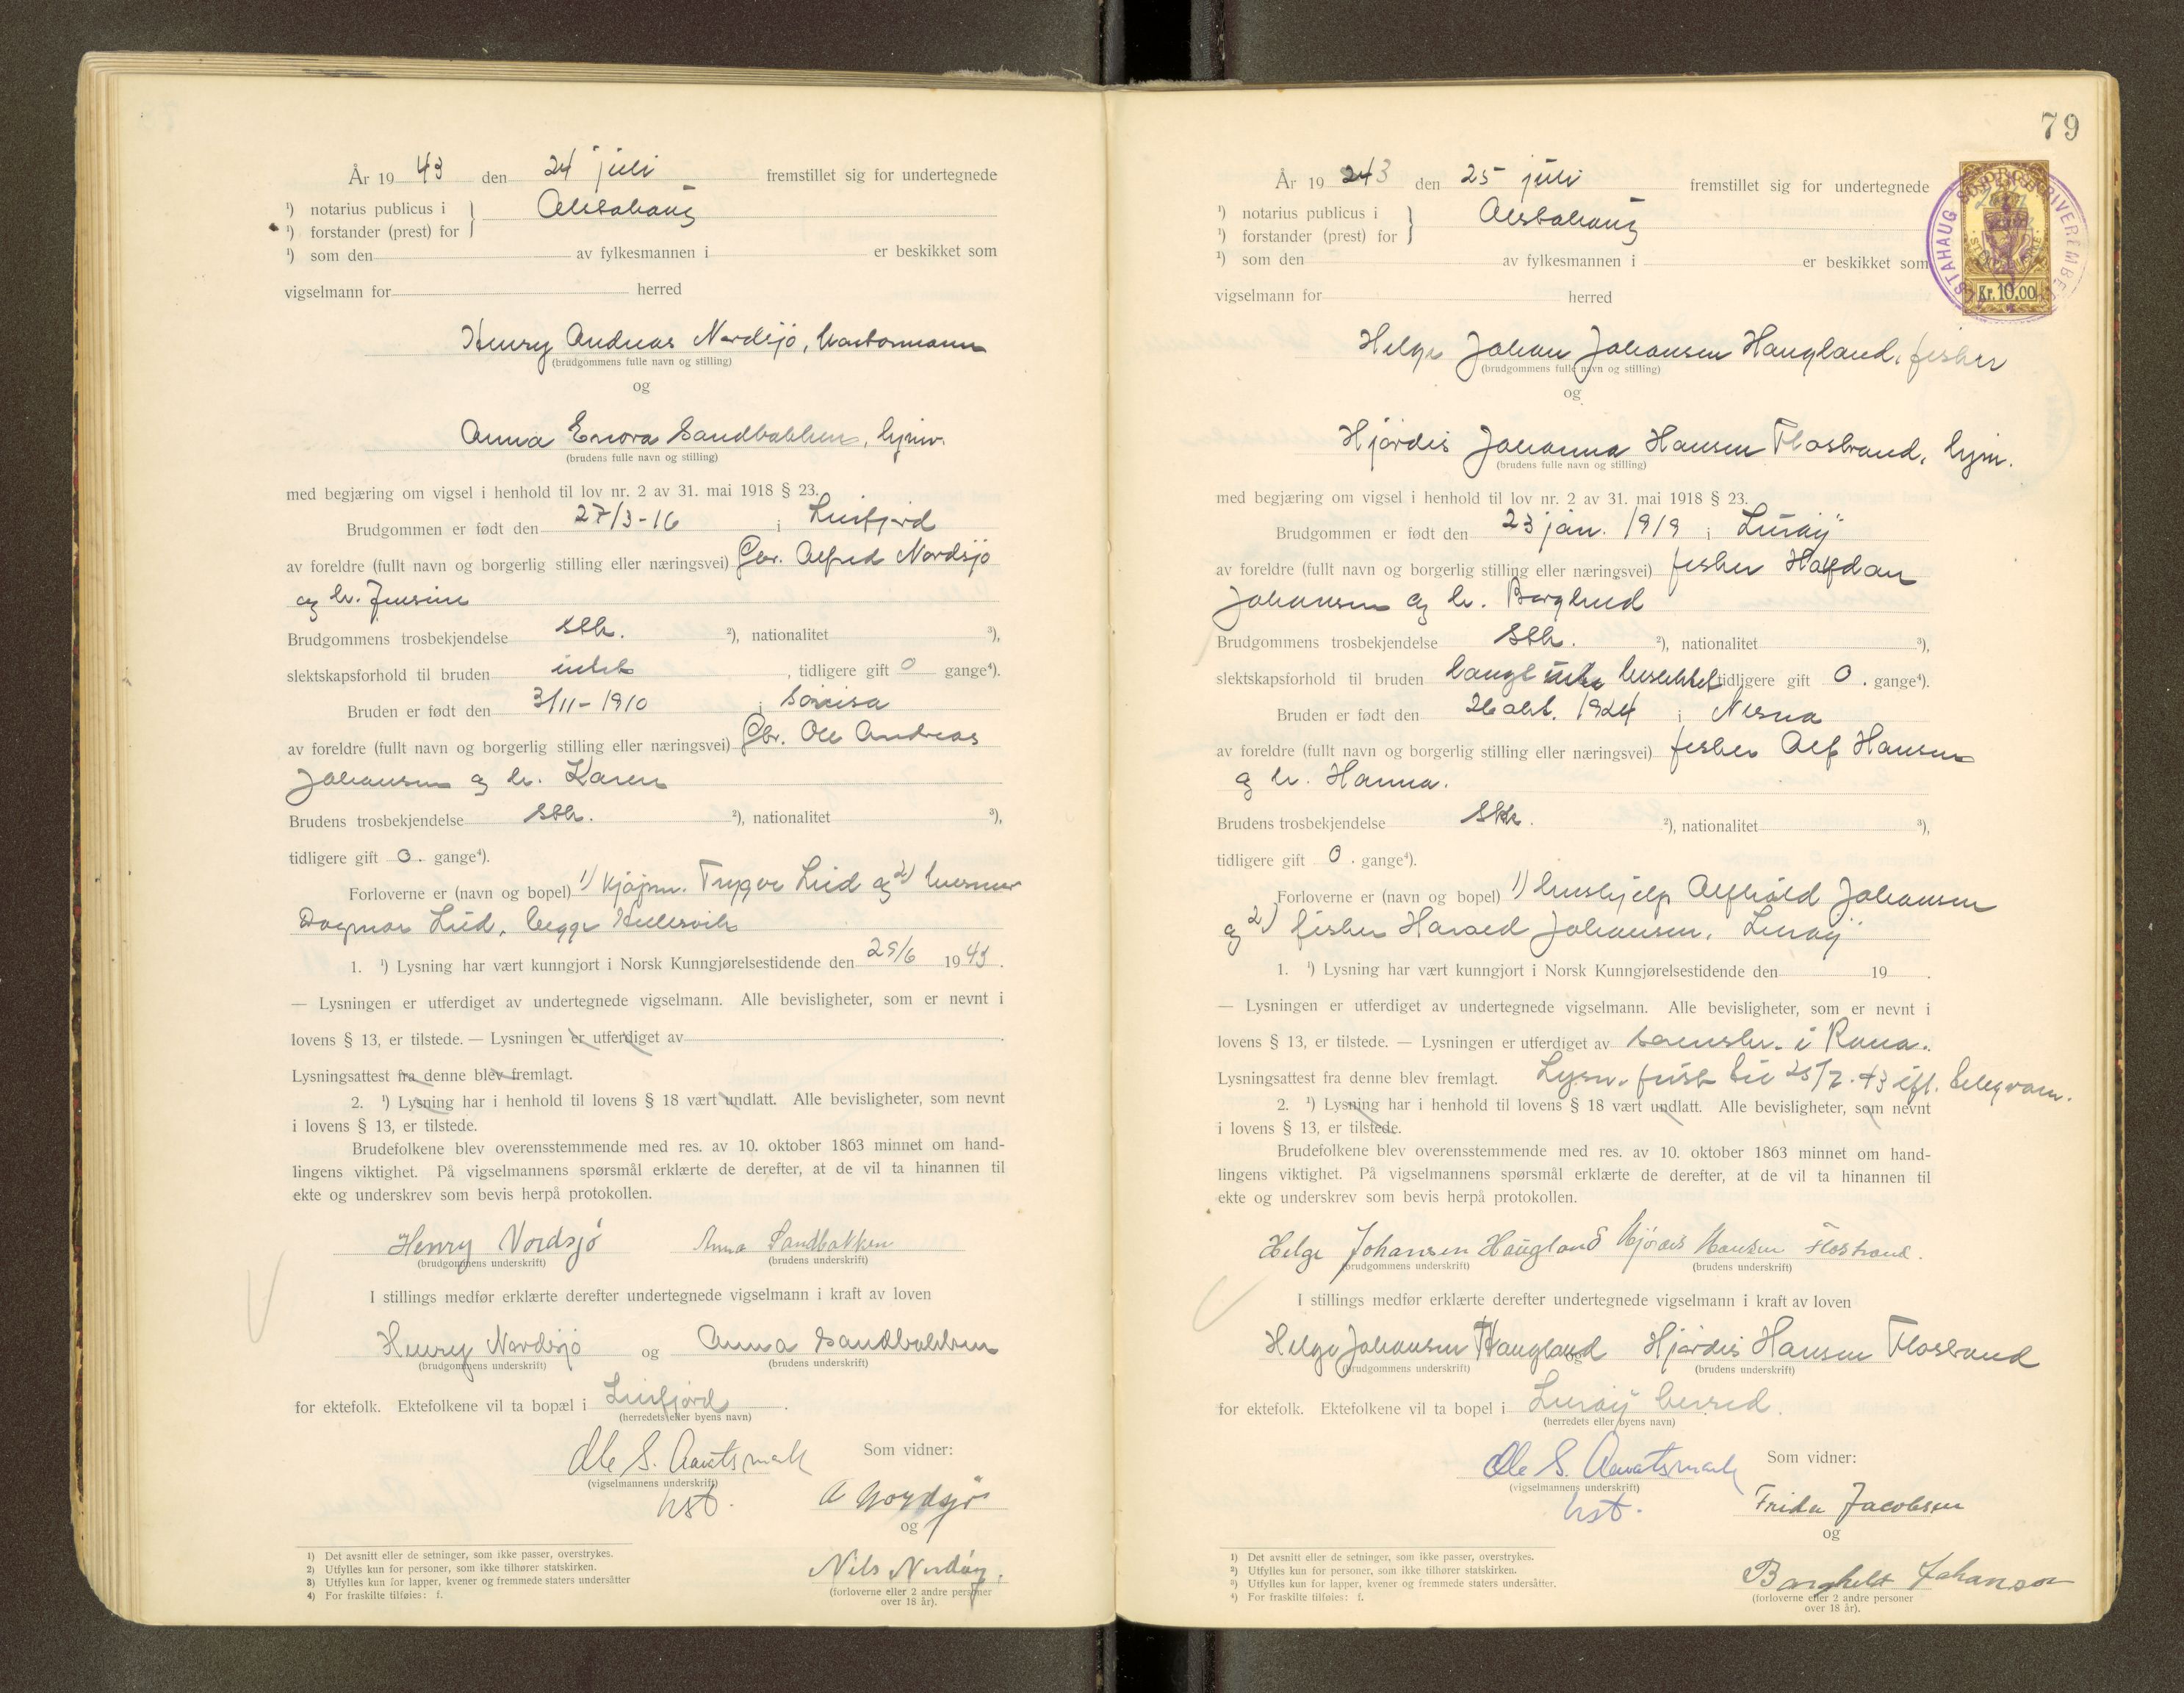 År 19 43 den 24 juli fremstillet sig for undertegnede
¹) notarius publicus i Alstahaug
¹) forstander (prest) for
¹) som den av fylkesmannen i er beskikket som
vigselmann for herred
Henry Andreas Nordsjø, kontormann
(brudgommens fulle navn og stilling)
og
Anna Enora Sandbakken, hjmv.
(brudens fulle navn og stilling)
med begjæring om vigsel i henhold til lov nr. 2 av 31. mai 1918 § 23.
Brudgommen er født den 27/3-16 i Leirfjord
av foreldre (fullt navn og borgerlig stilling eller næringsvei) Gbr. Alfred Nordsjø
og h. Jensine
Brudgommens trosbekjendelse stk. ²), nationalitet ³),
slektskapsforhold til bruden intet , tidligere gift 0 gange⁴).
Bruden er født den 3/11-1910 i
av foreldre (fullt navn og borgerlig stilling eller næringsvei) Gbr. Ole Andreas
Johansen og h. Karen
Brudens trosbekjendelse stk. ²), nationalitet ³),
tidligere gift 0. gange⁴).
Forloverne er (navn og bopel) 1) kjøpm. Trygve Lied og 2) husmor
Dagmar Lied, begge
1. ¹) Lysning har vært kunngjort i Norsk Kunngjørelsestidende den 29/6 19 43.
— Lysningen er utferdiget av undertegnede vigselmann. Alle bevisligheter, som er nevnt i
lovens § 13, er tilstede. — Lysningen er utferdiget av
Lysningsattest fra denne blev fremlagt.
2. ¹) Lysning har i henhold til lovens § 18 vært undlatt. Alle bevisligheter, som nevnt
i lovens § 13, er tilstede.
Brudefolkene blev overensstemmende med res. av 10. oktober 1863 minnet om hand-
lingens viktighet. På vigselmannens spørsmål erklærte de derefter, at de vil ta hinannen til
ekte og underskrev som bevis herpå protokollen.
Henry Nordsjø Anna Sandbakken
(brudgommens underskrift) (brudens underskrift)
I stillings medfør erklærte derefter undertegnede vigselmann i kraft av loven
Henry Nordsjø og Anna Sandbakken
(brudgommens underskrift) (brudens underskrift)
for ektefolk. Ektefolkene vil ta bopæl i Leirfjord.
(herredets eller byens navn)
Ole S. Aavatsmark Som vidner:
(vigselmannens underskrift)
kst. A Nordsjø
og
Nils
(forloverne eller 2 andre personer
over 18 år).
1) Det avsnitt eller de setninger, som ikke passer, overstrykes.
2) Utfylles kun for personer, som ikke tilhører statskirken.
3) Utfylles kun for lapper, kvener og fremmede staters undersåtter
4) For fraskilte tilføies: f.
79
År 19 43 den 25 juli fremstillet sig for undertegnede
¹) notarius publicus i Alstahaug
¹) forstander (prest) for
¹) som den av fylkesmannen i er beskikket som
vigselmann for herred
Kr. 10,00
Helge Johan Johansen Haugland, fisker
(brudgommens fulle navn og stilling)
og
Hjørdis Johanna Hansen Flostrand, hjm.
(brudens fulle navn og stilling)
med begjæring om vigsel i henhold til lov nr. 2 av 31. mai 1918 § 23.
Brudgommen er født den 23 jan. 1919 i Lurøy
av foreldre (fullt navn og borgerlig stilling eller næringsvei) fisker Halfdan
Johansen og h. Borghild
Brudgommens trosbekjendelse stk. ²), nationalitet ³),
slektskapsforhold til bruden langt ute beslektet tidligere gift 0. gange⁴).
Bruden er født den 26 okt. 1924 i Nesna
av foreldre (fullt navn og borgerlig stilling eller næringsvei) fisker Alf Hansen
og h. Hanna.
Brudens trosbekjendelse stk. ²), nationalitet ³),
tidligere gift 0. gange⁴).
Forloverne er (navn og bopel) 1) hushjelp Alfhild Johansen
og 2) fisker Harald Johansen, Lurøy
1. ¹) Lysning har vært kunngjort i Norsk Kunngjørelsestidende den 19 .
— Lysningen er utferdiget av undertegnede vigselmann. Alle bevisligheter, som er nevnt i
lovens § 13, er tilstede. — Lysningen er utferdiget av sorenskr. i Rana.
Lysningsattest fra denne blev fremlagt. Lysn. frist til 25/7-43 ifl. telegram.
2. ¹) Lysning har i henhold til lovens § 18 vært undlatt. Alle bevisligheter, som nevnt
i lovens § 13, er tilstede.
Brudefolkene blev overensstemmende med res. av 10. oktober 1863 minnet om hand-
lingens viktighet. På vigselmannens spørsmål erklærte de derefter, at de vil ta hinannen til
ekte og underskrev som bevis herpå protokollen.
Helge Johansen Haugland Hjørdis Hansen Flostrand.
(brudgommens underskrift) (brudens underskrift)
I stillings medfør erklærte derefter undertegnede vigselmann i kraft av loven
Helge Johansen Haugland og Hjørdis Hansen Flostrand
(brudgommens underskrift) (brudens underskrift)
for ektefolk. Ektefolkene vil ta bopel i Lurøy herred.
(herredets eller byens navn)
Ole S. Aavatsmark Som vidner:
(vigselmannens underskrift)
kst. Frida Jacobsen
og
Borghild Johansen
(forloverne eller 2 andre personer
over 18 år).
1) Det avsnitt eller de setninger, som ikke passer, overstrykes.
2) Utfylles kun for personer, som ikke tilhører statskirken.
3) Utfylles kun for lapper, kvener og fremmede staters undersåtter.
4) For fraskilte tilføies: f.